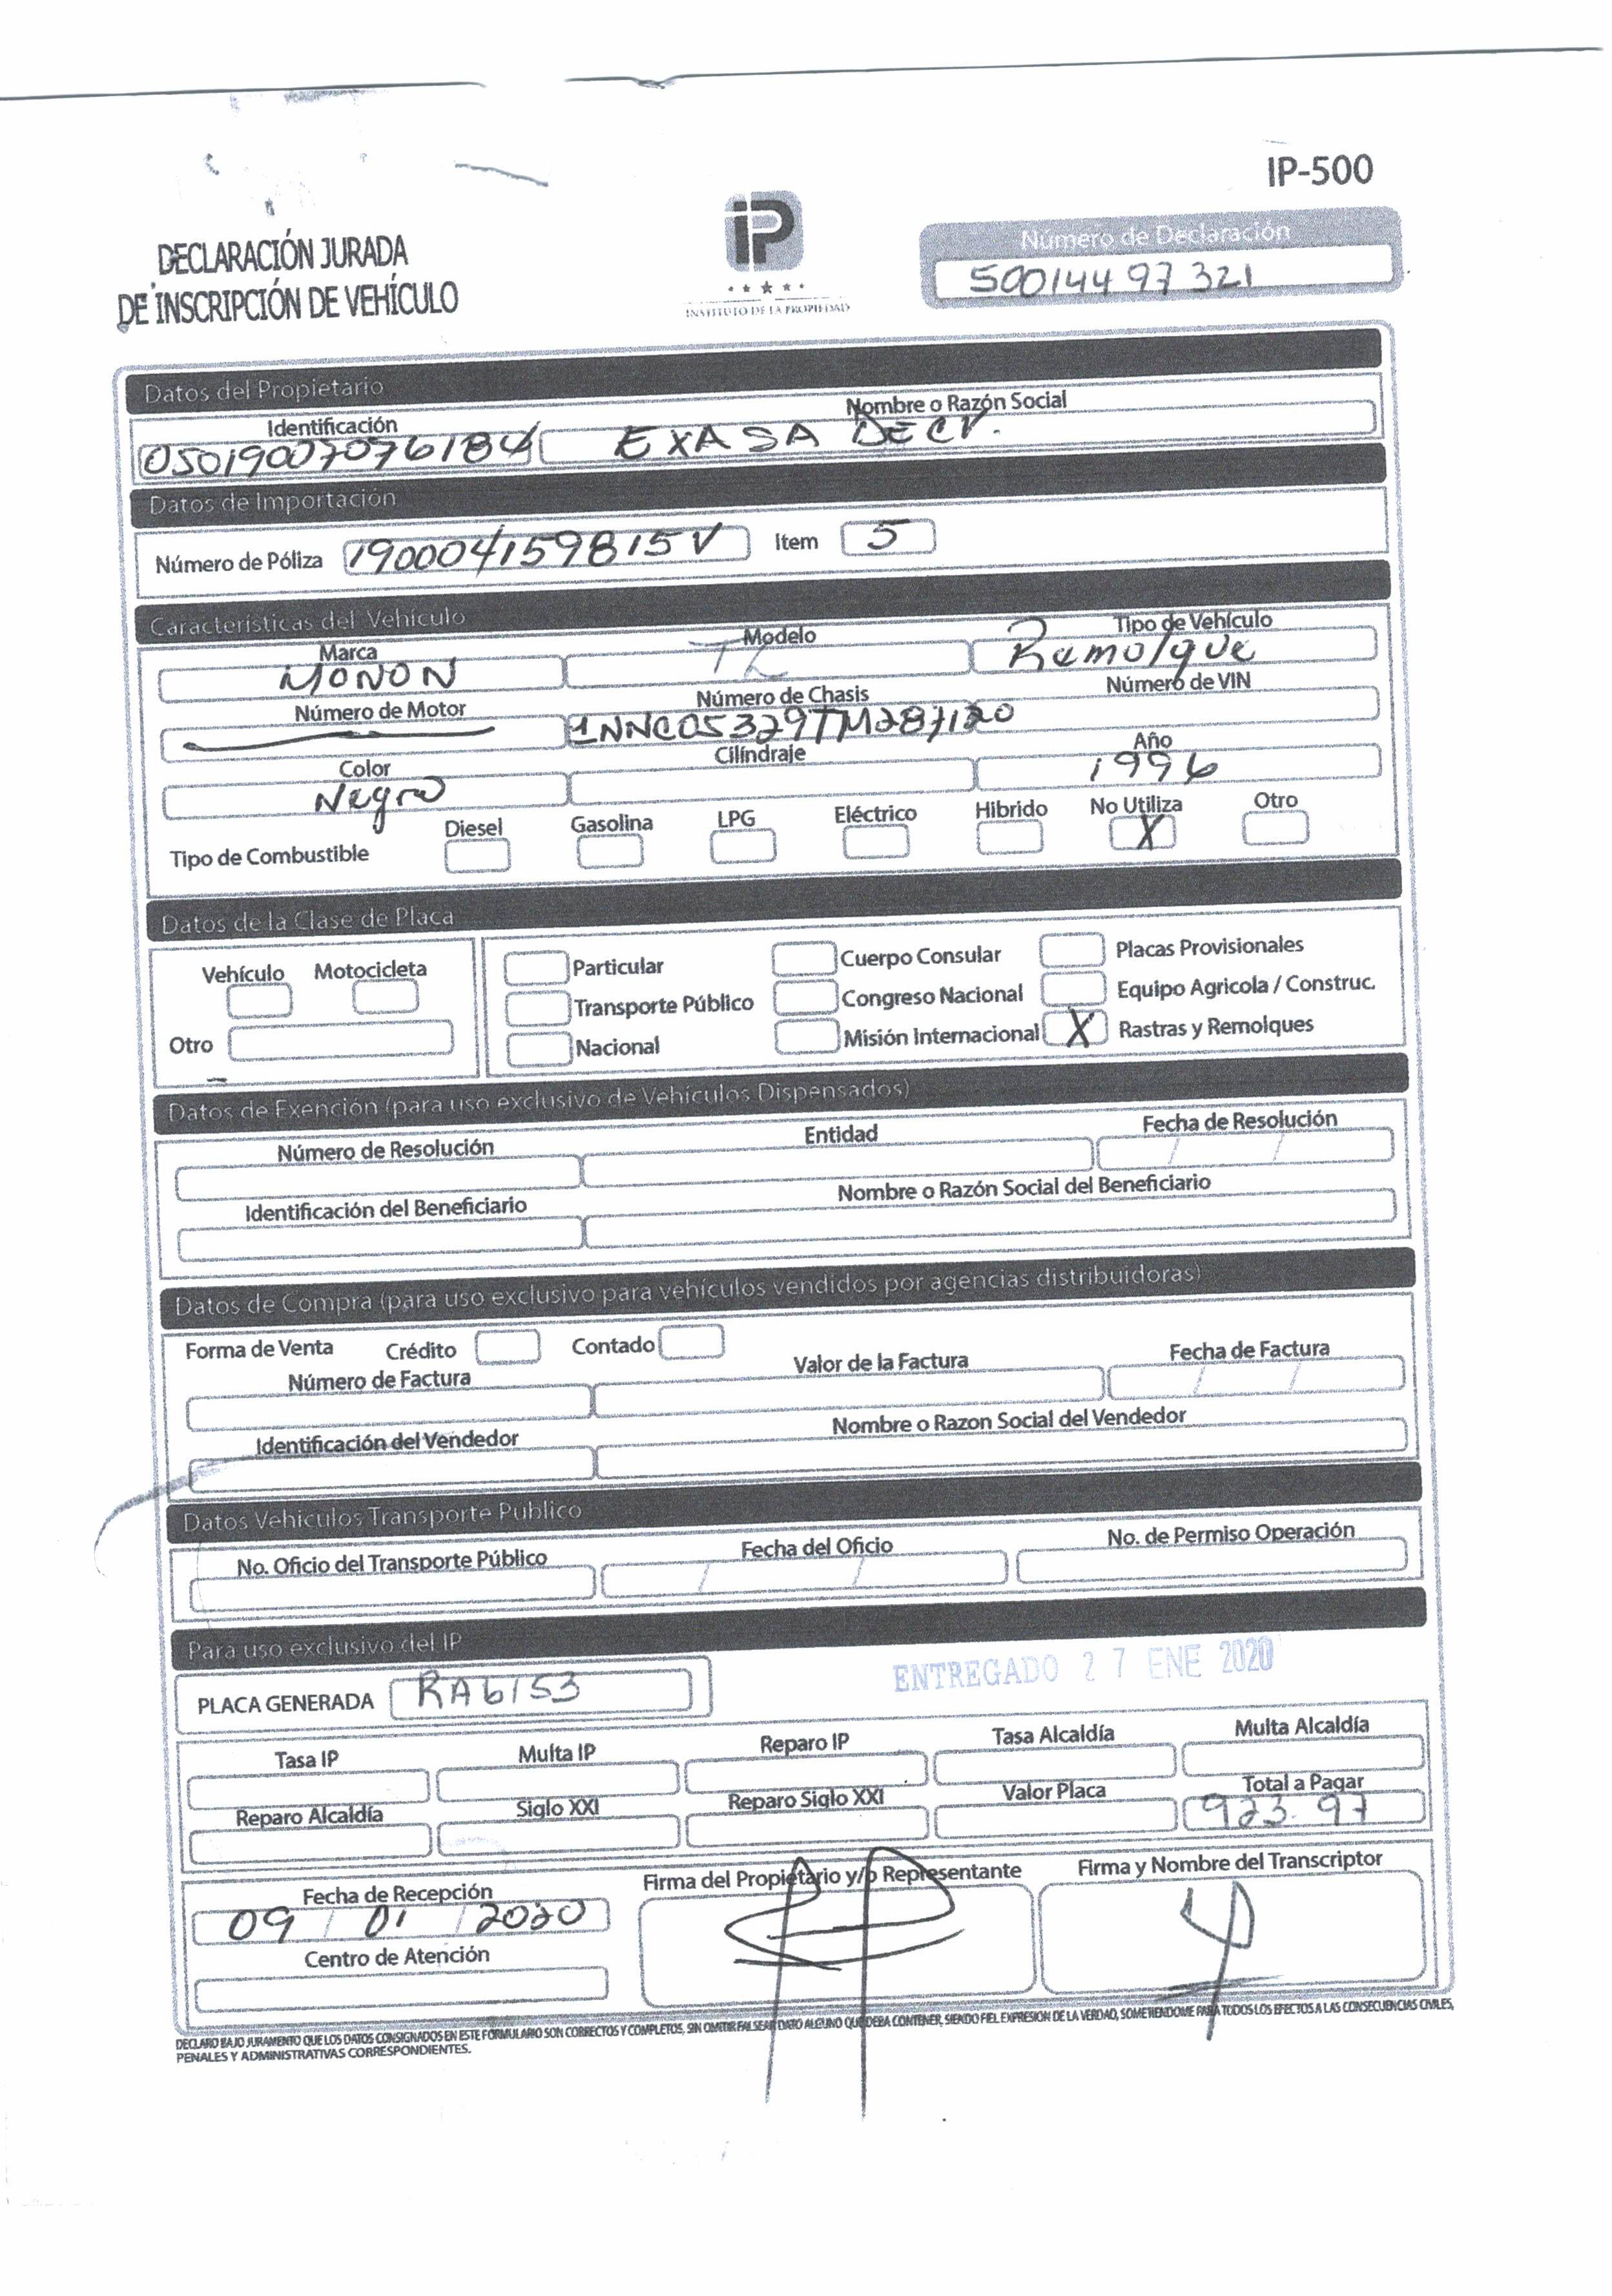 IP-500
DECLARACIÓN JURADA
DE INSCRIPCIÓN DE VEHÍCULO
iP
INSTITUTO DE LA PROPIEDAD
Número de Declaración
50014497321
Datos del Propietario
Identificación Nombre o Razón Social
EXA SA DE CV.
Datos de Importación
Número de Póliza Item 5
Características del Vehículo
Marca Modelo Tipo de Vehículo
MONON Remolque
Número de Motor Número de Chasis Número de VIN
1NNC05329TM287120
Color Cilíndraje Año
Negro 1996
Tipo de Combustible Diesel Gasolina LPG Eléctrico Hibrido No Utiliza Otro
X
Datos de la Clase de Placa
Vehículo Motocicleta Particular Cuerpo Consular Placas Provisionales
Transporte Público Congreso Nacional Equipo Agricola / Construc.
Otro Nacional Misión Internacional X Rastras y Remolques
Datos de Exención (para uso exclusivo de Vehículos Dispensados)
Número de Resolución Entidad Fecha de Resolución
/ /
Identificación del Beneficiario Nombre o Razón Social del Beneficiario
Datos de Compra (para uso exclusivo para vehículos vendidos por agencias distribuidoras)
Forma de Venta Crédito Contado
Número de Factura Valor de la Factura Fecha de Factura
/ /
Identificación del Vendedor Nombre o Razon Social del Vendedor
Datos Vehiculos Transporte Publico
No. Oficio del Transporte Público Fecha del Oficio No. de Permiso Operación
/ /
Para uso exclusivo del IP
PLACA GENERADA RA6153
ENTREGADO 27 ENE 2020
Tasa IP Multa IP Reparo IP Tasa Alcaldía Multa Alcaldía
Reparo Alcaldía Siglo XXI Reparo Siglo XXI Valor Placa Total a Pagar
923.97
Fecha de Recepción Firma del Propietario y/o Representante Firma y Nombre del Transcriptor
09 / 01 / 2020
Centro de Atención
DECLARO BAJO JURAMENTO QUE LOS DATOS CONSIGNADOS EN ESTE FORMULARIO SON CORRECTOS Y COMPLETOS, SIN OMITIR FALSEAR DATO ALGUNO QUE DEBA CONTENER, SIENDO FIEL EXPRESION DE LA VERDAD, SOMETIENDOME PARA TODOS LOS EFECTOS A LAS CONSECUENCIAS CIVILES,
PENALES Y ADMINISTRATIVAS CORRESPONDIENTES.